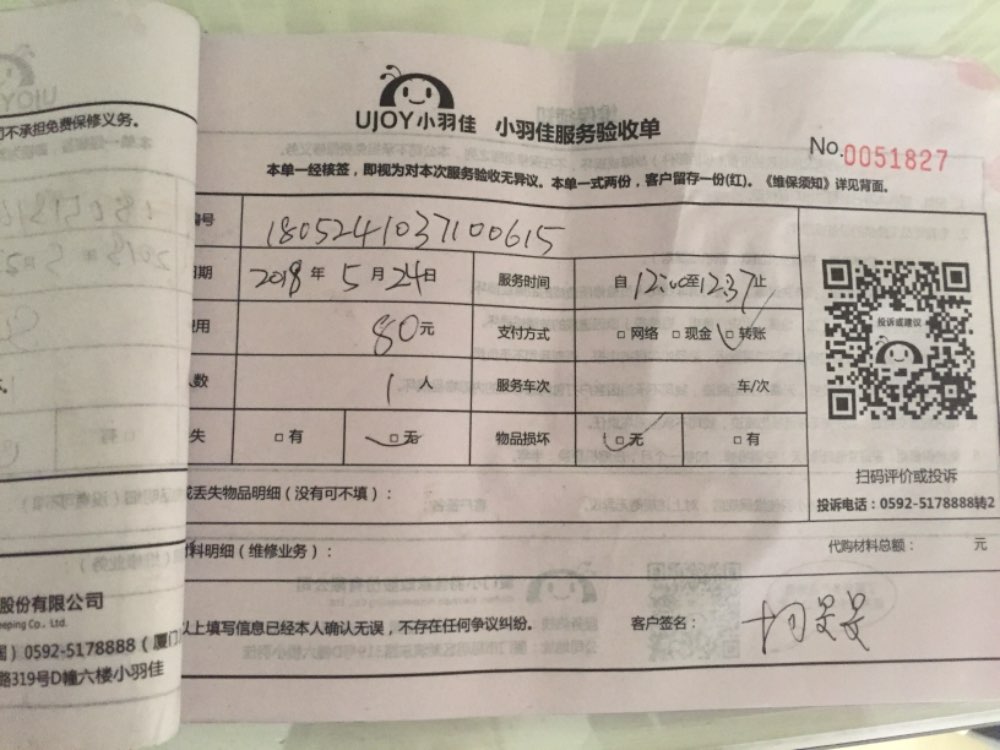 UJOY小羽佳 小羽佳服务验收单
No.0051827
本单一经核签，即视为对本次服务验收无异议。本单一式两份，客户留存一份(红)。《维保须知》详见背面。
编号 1805241037100615
日期 2018年5月24日 服务时间 自12:00至12:37止
费用 80元 支付方式 □网络 □现金 □转账
人数 1人 服务车次 车/次
失 □有 □无 物品损坏 □无 □有
投诉或建议
扫码评价或投诉
投诉电话：0592-5178888转2
或丢失物品明细（没有可不填）：
材料明细（维修业务）： 代购材料总额： 元
以上填写信息已经本人确认无误，不存在任何争议纠纷。 客户签名：
司不承担免费保修义务。
股份有限公司
eeping Co., Ltd.
) 0592-5178888（厦门
路319号D幢六楼小羽佳